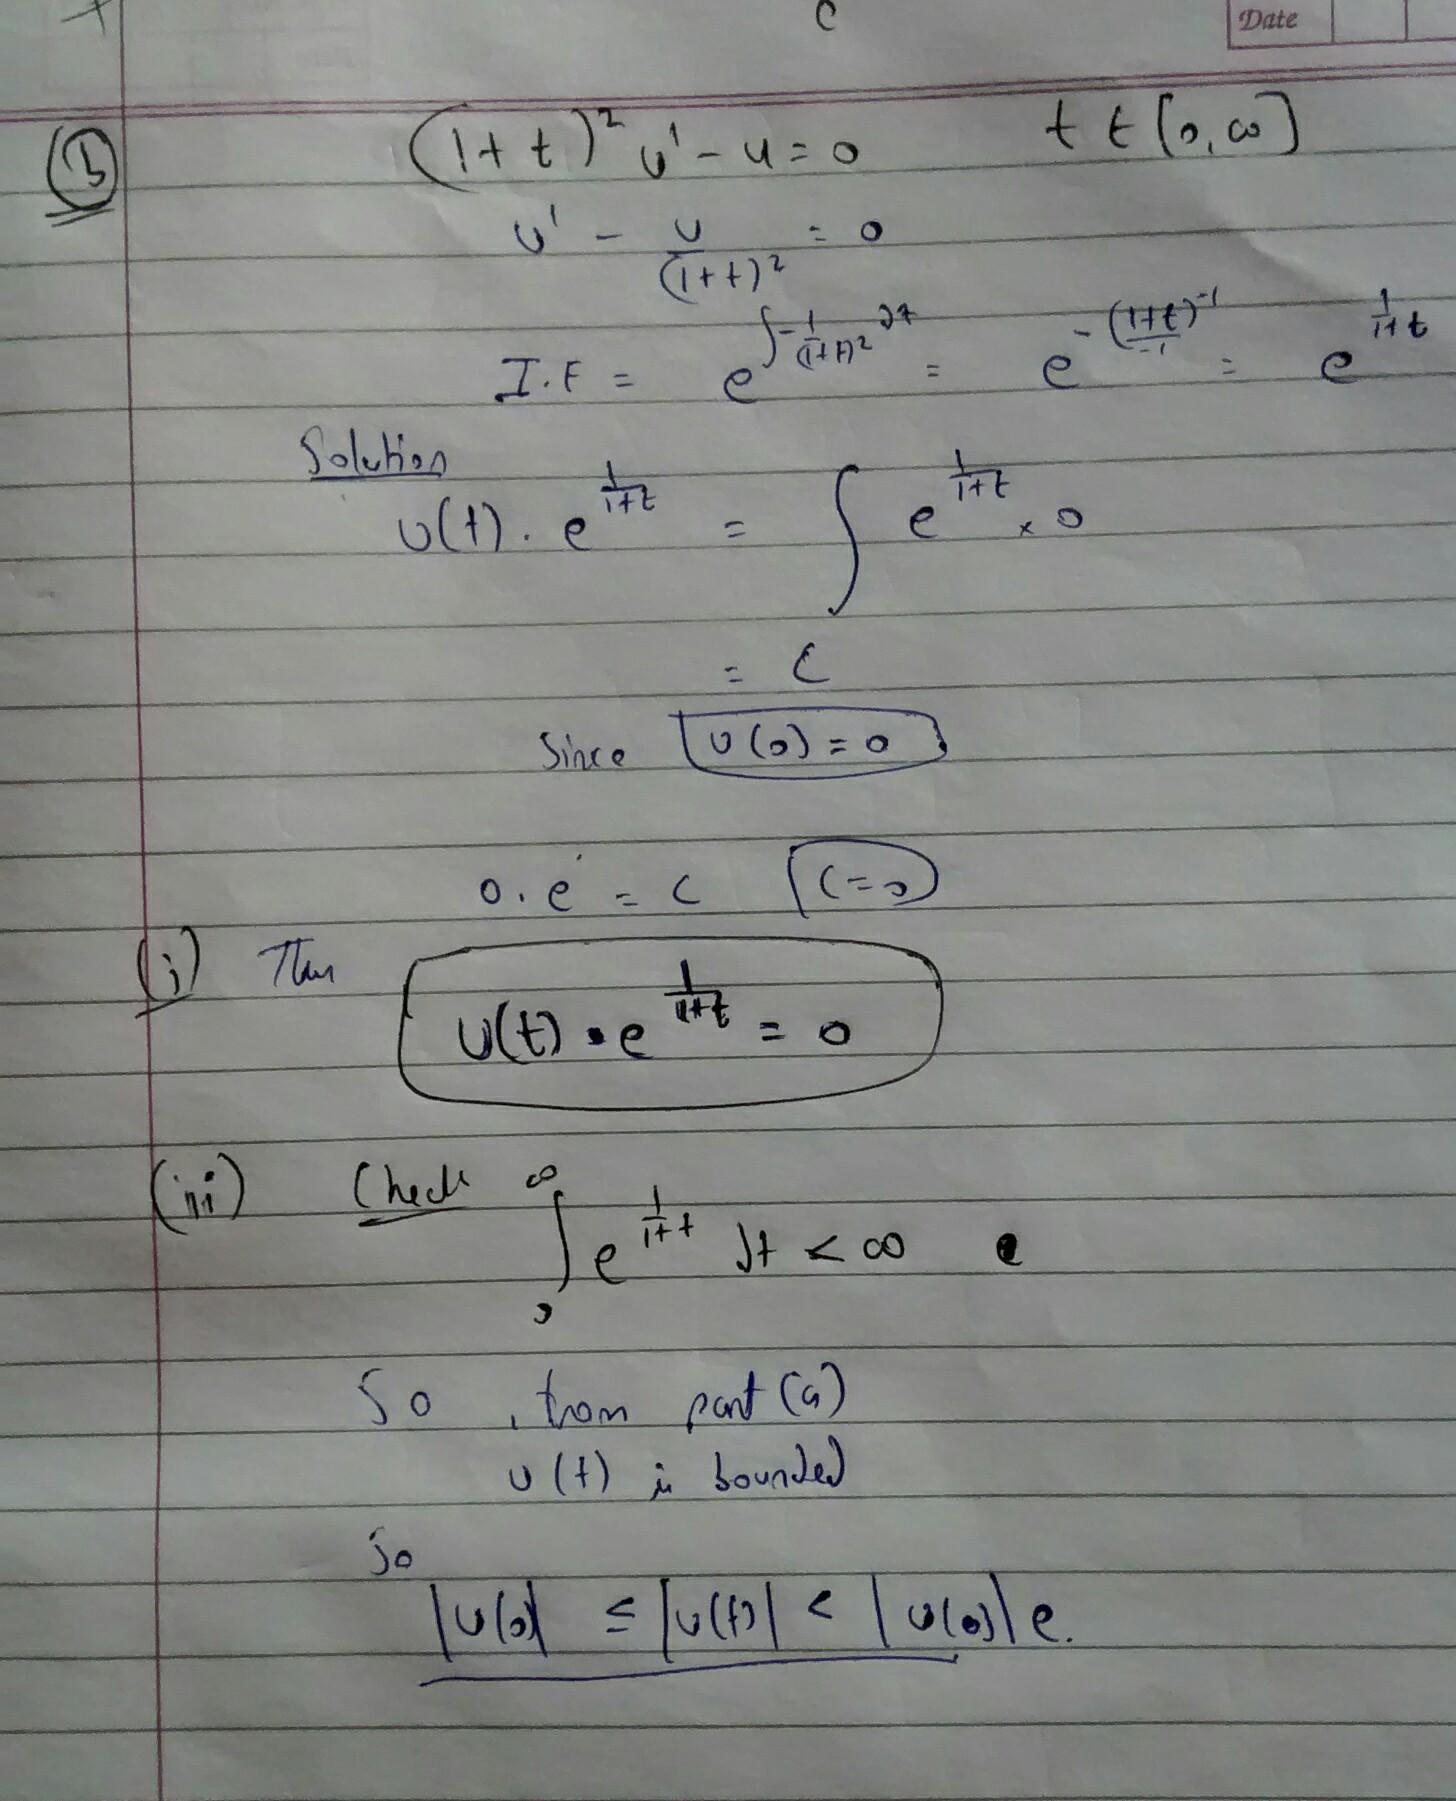 c
Date
(B) (1+t)² u' - u = 0 t ∈ [0,∞]
u' - u/(1+t)² = 0
I.F = e^{∫-1/(1+t)² dt} = e^{-(1+t)^{-1}/-1} = e^{1/(1+t)}
Solution
u(t) . e^{1/(1+t)} = ∫ e^{1/(1+t)} × 0
= C
Since u(0) = 0
0 . e = C C=0
(i) Then u(t) • e^{1/(1+t)} = 0
(iii) Check ∫₀^∞ e^{1/(1+t)} dt < ∞
So , from part (a)
u(t) is bounded
So
|u(0)| ≤ |u(t)| < |u(0)| e.